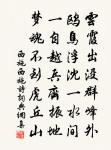 雲霞出沒群峰外
鷗鳥浮沈一水間
一自越兵齊振地
夢魂不到虎丘山
西施西施詩詞與調集